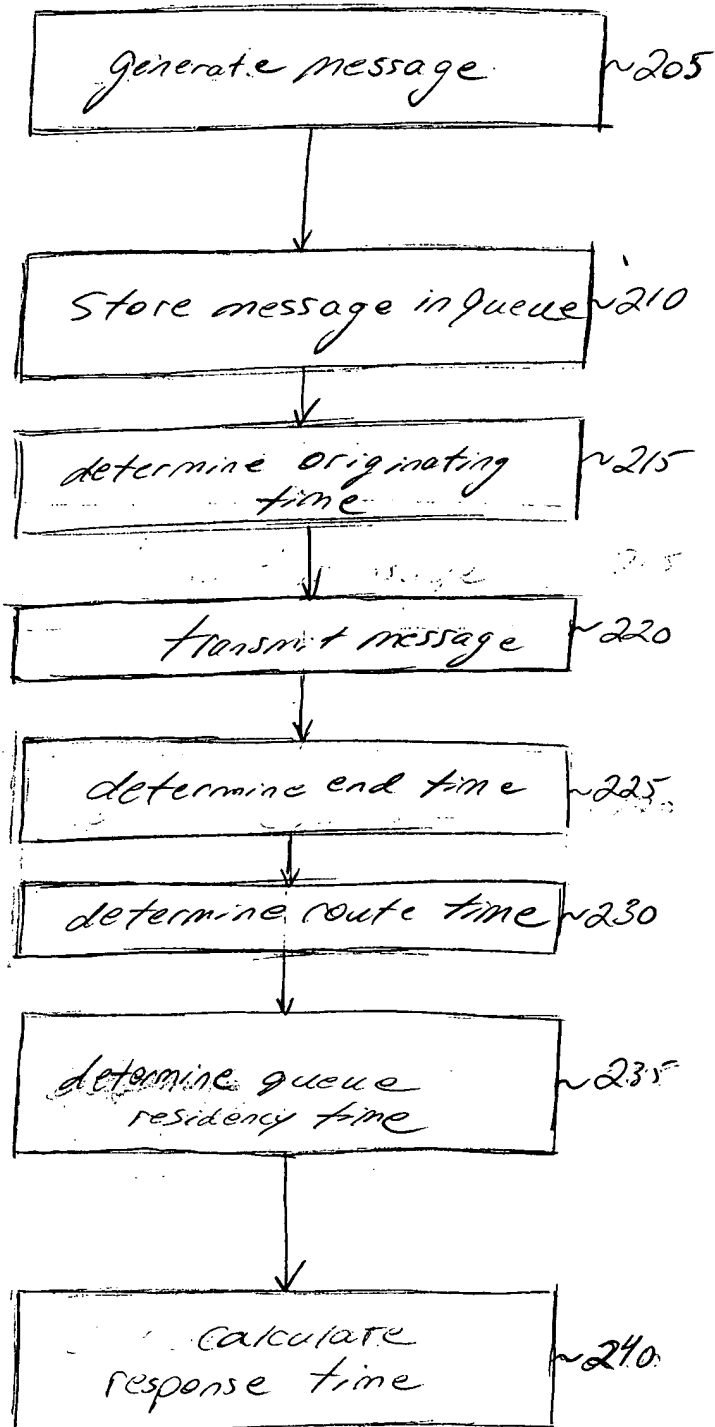 generate message ~205
Store message in queue ~210
determine originating ~215
time
transmit message ~220
determine end time ~225
determine route time ~230
determine queue ~235
residency time
calculate
response time ~240